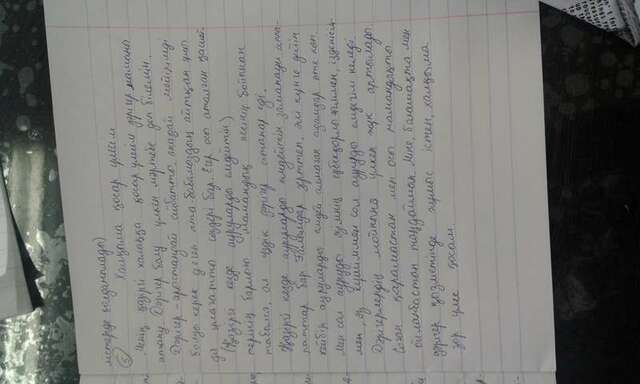 мстерде қолданалады)
5
Халқыма қосар үлесім
Менің қазіргі халаққа қосар үлесім дәрігер мамаһы
атану. Дәрігер болу үлкен мәртебе деп білемін.
Дәрігер - арыстандай айбатты, анадай мейірімді
болуы керек деген ата-бабамыздың айтқан
ді сөздері бар. Егер осы аталған қасиет-
(Қазіргі кезде ауруларды емдейтін)
тернің барлығы мамандық иесінің бойынан
табылса, ол үздік дәрігер атанар еді.
Қазіргі кезде ауруларды емдейтін заманауи аппа-
раттар бар. дерттен, әлі күнге дейін
кейбір ауруларды емдей алмаған адамдар өте көп.
Мен сол ауруды өзімнің еңбекқорлығыммен, ізденісім-
мен, өз күшіммен сол ауруды емдегім келеді.
Дәрігерлердің мойнына үлкен жүк артылады.
Соған қарамастан мен осы мамандықты
ойланбастан таңдаймын. Міне, болашақта мен
дәрігер қызметінде жұмыс істеп, халқыма
зор үлес қосам.